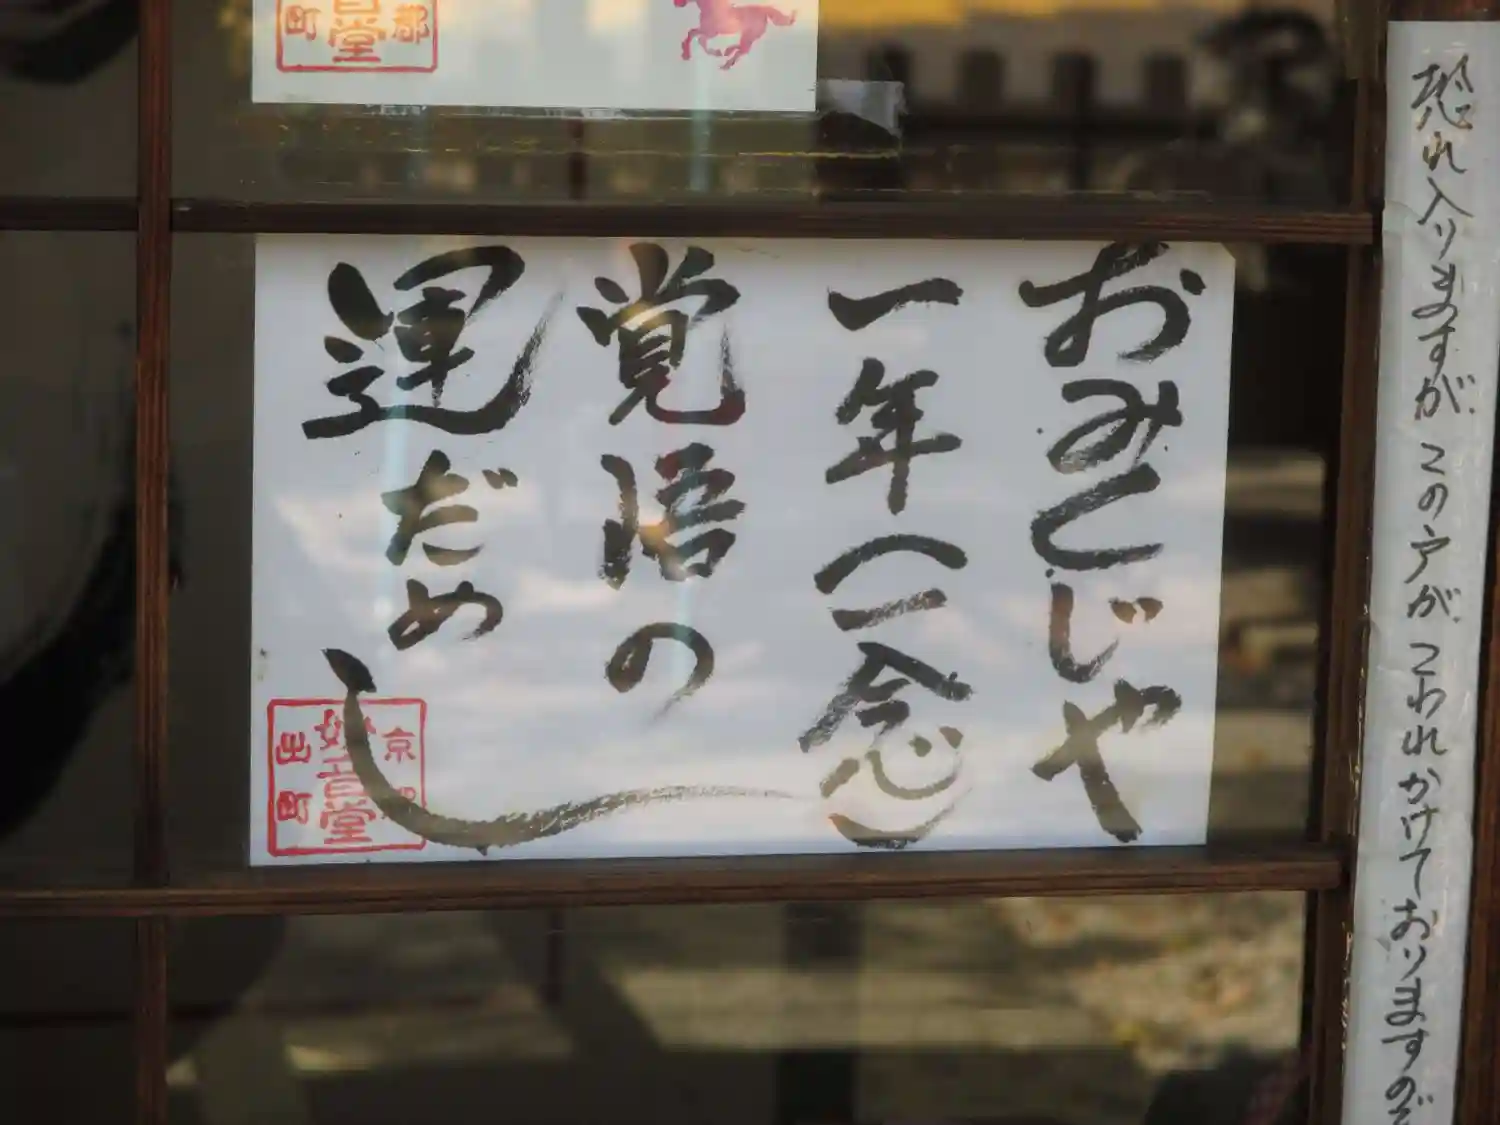 恐れ入りますが この戸が こわれかけておりますので
都
音堂
町
おみくじや
一年へ一念
覚悟の
運だめし
京都
妙音堂
出町